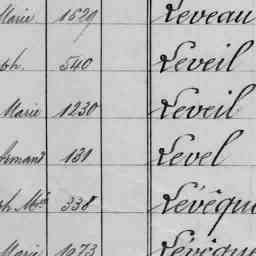 Marie 1529 Leveau
ph. 540 Leveil
Marie 1230 Leveil
Armand 131 Level
ph Mie 338 Lévêqu
Marie 1973 Lévêque